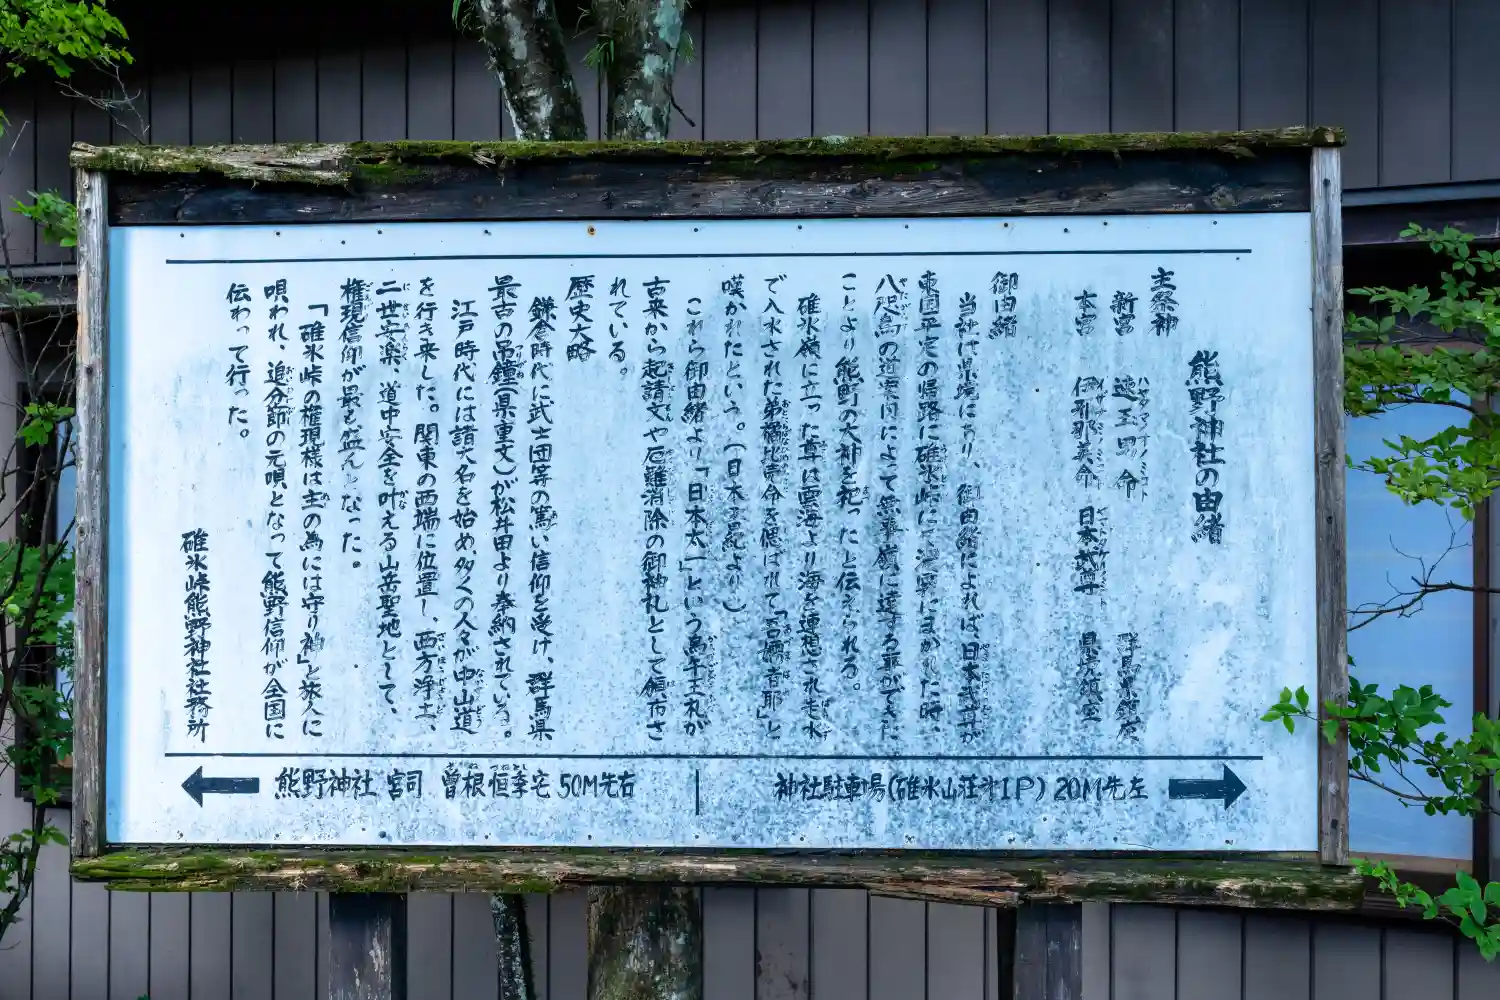 熊野神社の由緒
主祭神
新宮 速玉男命 群馬県鎮座
本宮 伊邪那美命 日本武尊 県境鎮座
御由緒
当社は県境にあり、御由緒によれば、日本武尊が
東国平定の帰路に碓氷峠にて濃霧にまかれた時、
八咫烏の道案内によって無事嶺に達する事ができた
ことより熊野の大神を祀ったと伝えられる。
碓氷嶺に立った尊は雲海より海を連想され走水
で入水された弟橘比売命を偲ばれて「吾嬬者耶」と
嘆かれたという。(日本書紀より)
これら御由緒より「日本太一」という烏午王札が
古来から起請文や厄難消除の御神札として頒布さ
れている。
歴史大略
鎌倉時代に武士団等の篤い信仰を受け、群馬県
最古の吊鐘(県重文)が松井田より奉納されている。
江戸時代には諸大名を始め多くの人々が中山道
を行き来した。関東の西端に位置し、西方浄土、
二世安楽、道中安全を叶える山岳聖地として、
権現信仰が最も盛んとなった。
「碓氷峠の権現様は主の為には守り神」と旅人に
唄われ、追分節の元唄となって熊野信仰が全国に
伝わって行った。
碓氷峠熊野神社社務所
熊野神社 宮司 曽根恒季宅 50M先右
神社駐車場(碓氷山荘サIP) 20M先左